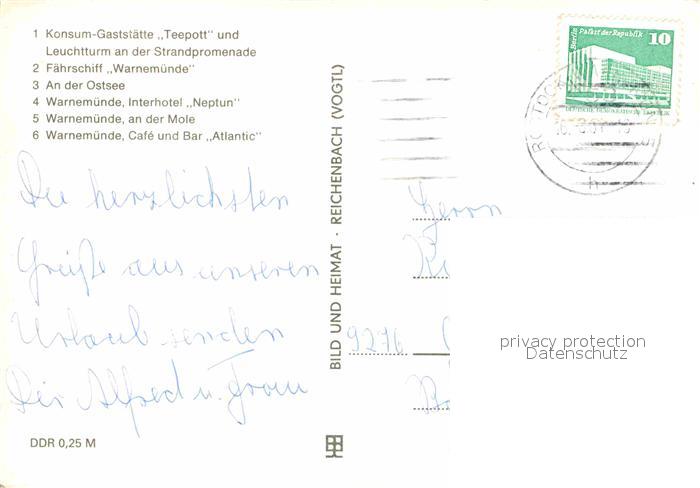 1 Konsum-Gaststätte „Teepott" und
Leuchtturm an der Strandpromenade
2 Fährschiff „Warnemünde"
3 An der Ostsee
4 Warnemünde, Interhotel „Neptun"
5 Warnemünde, an der Mole
6 Warnemünde, Café und Bar „Atlantic"
Die herzlichsten
Grüße aus unseren
Urlaub senden
Dir Alfred u. Frau
DDR 0,25 M
BILD UND HEIMAT · REICHENBACH (VOGTL)
Berlin
Palast der Republik
10
DEUTSCHE DEMOKRATISCHE REPUBLIK
Herrn
9276
privacy protection
Datenschutz